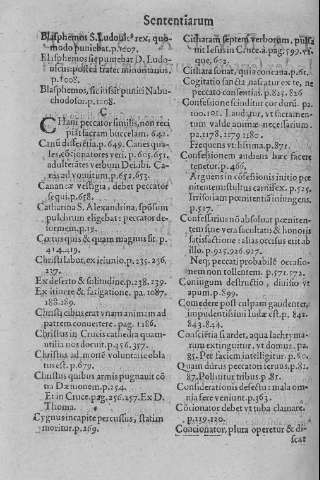 Sententiarum
Blasphemos S. Ludouic° rex, quo-
modo puniebat. p. 1007.
Blasphemos sic puniebat D. Ludo-
uicus postea frater minoritanus.
p. 1008.
Blasphemos, sic iussit puniri Nabu-
chodosor. p. 1008.
C
CHam peccator similis, non reci
piat sacram buccelam. 642.
Canũ differẽtia. p. 649. Canes qua-
les, cõcionatores veri. p. 650. 651.
adulterates verbum Dei. ibi. Ca-
nis ad vomitum. p. 652. 653.
Cananeæ vestigia, debet peccator
sequi. p. 658.
Catharina S. Alexandrina, spõsum
pulchrum eligebat: peccator de-
formem. p. 19.
Cœtus quis & quam magnus sit. p.
414. 419.
Christi labor, ex ieiunio. p. 235. 236.
237.
Ex deserto & solitudine. p. 238. 239.
Ex itinere & fatigatione. pa. 1087.
188. 189.
Christi cibus erat vnam animam ad
patrem conuertere. pag. 1186.
Christus in Crucis cathedra quam
vtilia nos docuit. p. 456. 357.
Christus ad mortẽ voluntariè obla
tus est. p. 679.
Christus quibus armis pugnauit cõ
tra Dæmonem. p. 254.
Et in Cruce. pag. 256. 257. Ex D.
Thoma.
Cygnus incapite percussus, statim
moritur. p. 269.
Citharam septem verborum, pulsa
uit Iesus in Cruce. à pag. 599. vs-
que, 602.
Cithara sonat, quia concaua. p. 61.
Cogitatio sancta nascatur ex te, ne
peccato consentias. p. 825. 826
Confessione scinditur cor duru. pa.
1100. 1101. Laudatur, vt sacramen-
tum valde animæ necessarium.
pa. 1178. 1179. 1180.
Frequens vtilissima. p. 871.
Confessionem audiens hæc facere
tenetur. p. 466,
Arguens in cõfessionis initio pœ
nitentem: stultus carnifex. p. 525.
Irrisoriam pœnitentiã iniungens,
p. 527.
Confessarius nõ absoluat pœniten-
tem sine vera facultatis & honoris
satisfactione: alias occisus erit ab
illo. p. 925. 926. 927.
Neq; peccati probabilẽ occasio-
nem non tollentem. p. 571. 572.
Coniugum destructio, diuisio vt
apum. p. 899.
Comedere post culpam gaudenter,
impudentissimi Iudæ est. p. 842.
843. 844.
Consciẽtia si ardet, aqua lachryma-
rum extinguitur, vt domus. pa.
85. Pet faciem intelligitur. p. 60.
Quam durus peccatori seruus. p. 82.
87. Pollutitur tribus p. 81.
Considerationis defectu: mala om-
nia fere veniunt. p. 363.
Cõcionator debet vt tuba clamare.
p. 119. 120.
Concionator, plura operetur & di-
scat